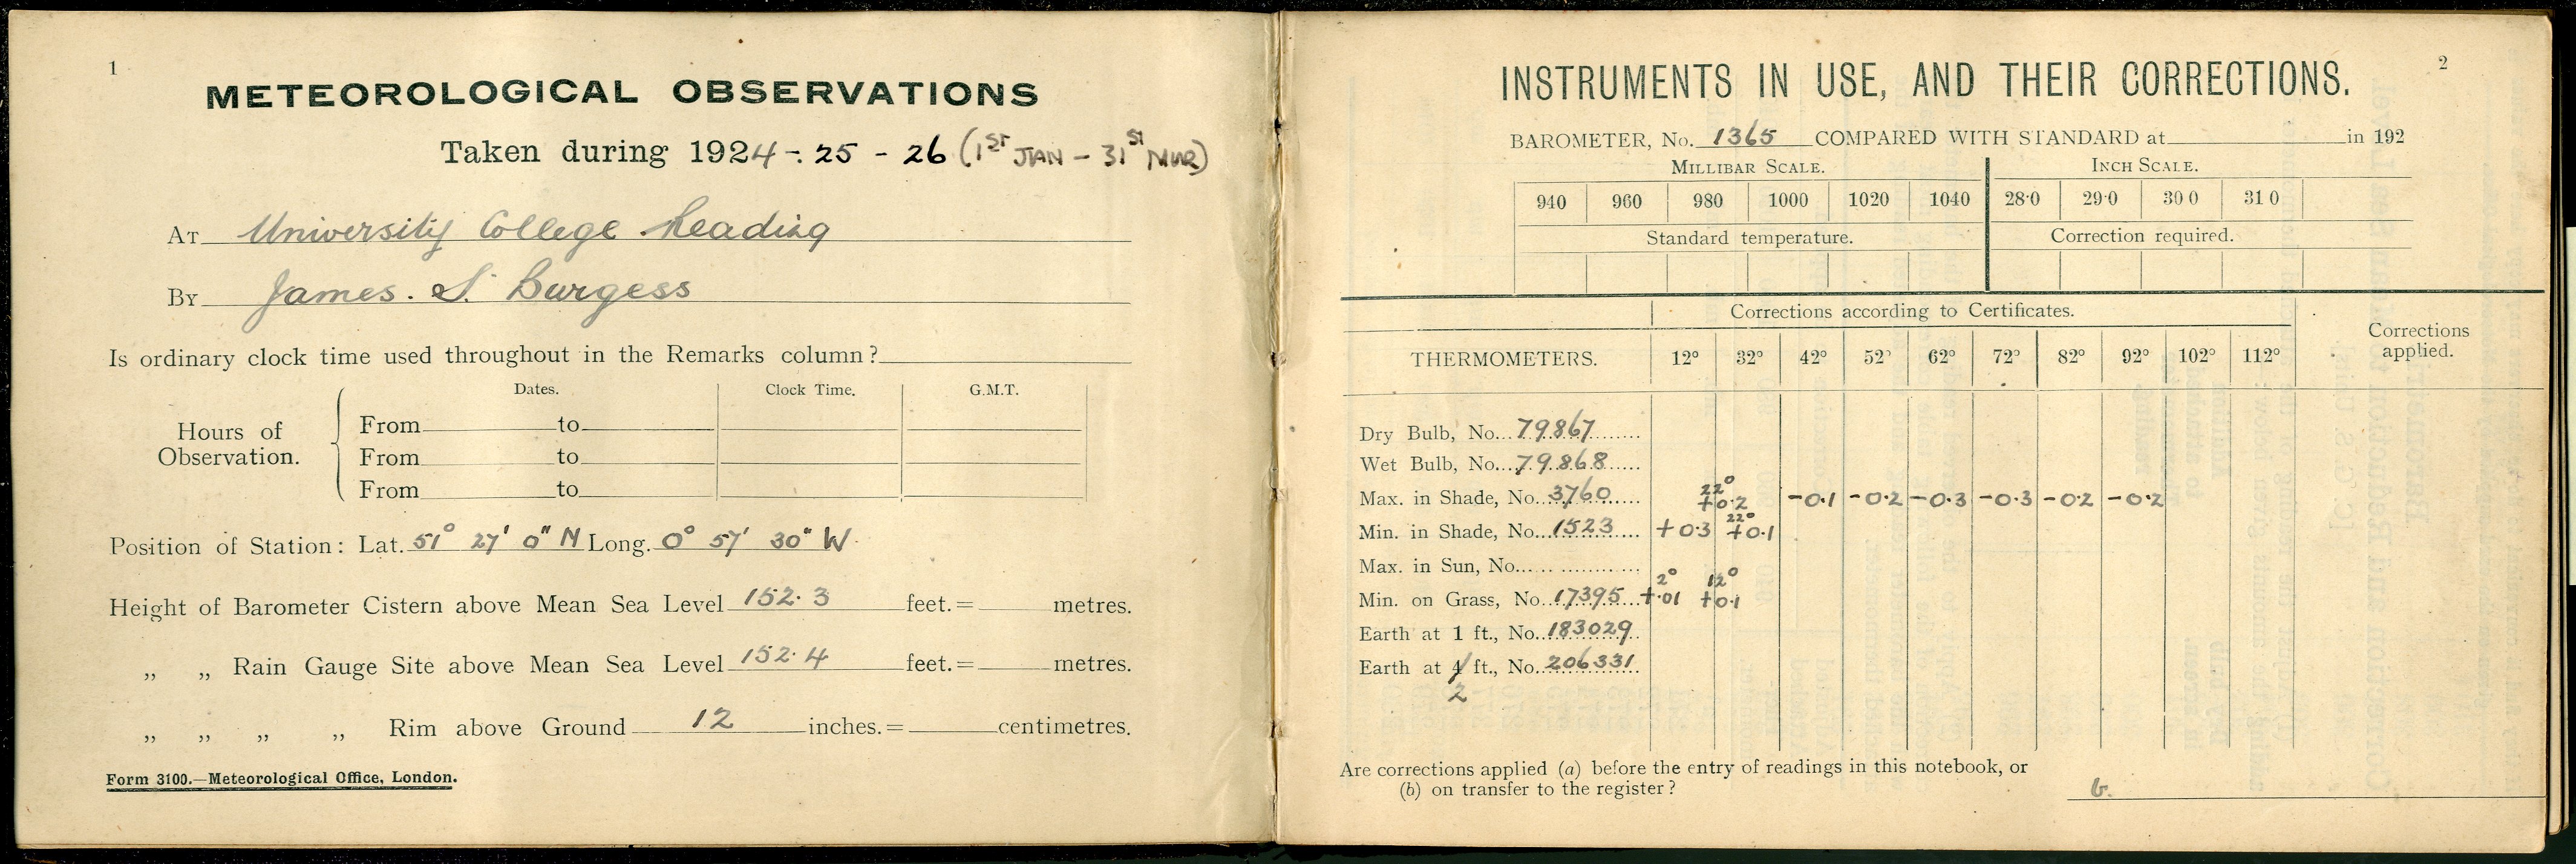 1
METEOROLOGICAL OBSERVATIONS
Taken during 1924-25-26 (1ST JAN - 31ST MAR)
AT University College Reading
BY James. S. Burgess
Is ordinary clock time used throughout in the Remarks column?
Dates. Clock Time. G.M.T.
Hours of Observation.
From to
From to
From to
Position of Station: Lat. 51° 27' 0" N Long. 0° 57' 30" W.
Height of Barometer Cistern above Mean Sea Level 152.3 feet.= metres.
„ „ Rain Gauge Site above Mean Sea Level 152.4 feet.= metres.
„ „ „ „ Rim above Ground 12 inches.= centimetres.
Form 3100.—Meteorological Office, London.
2
INSTRUMENTS IN USE, AND THEIR CORRECTIONS.
BAROMETER, No. 1365 COMPARED WITH STANDARD at in 192
MILLIBAR SCALE. INCH SCALE.
940 960 980 1000 1020 1040 28·0 29·0 30 0 31 0
Standard temperature. Correction required.
Corrections according to Certificates.
Corrections applied.
THERMOMETERS. 12° 32° 42° 52° 62° 72° 82° 92° 102° 112°
Dry Bulb, No. 79867
Wet Bulb, No. 79868
22°
Max. in Shade, No. 3760 +0.2 -0.1 -0.2 -0.3 -0.3 -0.2 -0.2
22°
Min. in Shade, No. 1523 +0.3 +0.1
Max. in Sun, No.
2° 12°
Min. on Grass, No. 17395 +.01 +0.1
Earth at 1 ft., No. 183029
Earth at 4 ft., No. 206331
2
Are corrections applied (a) before the entry of readings in this notebook, or
(b) on transfer to the register? b.